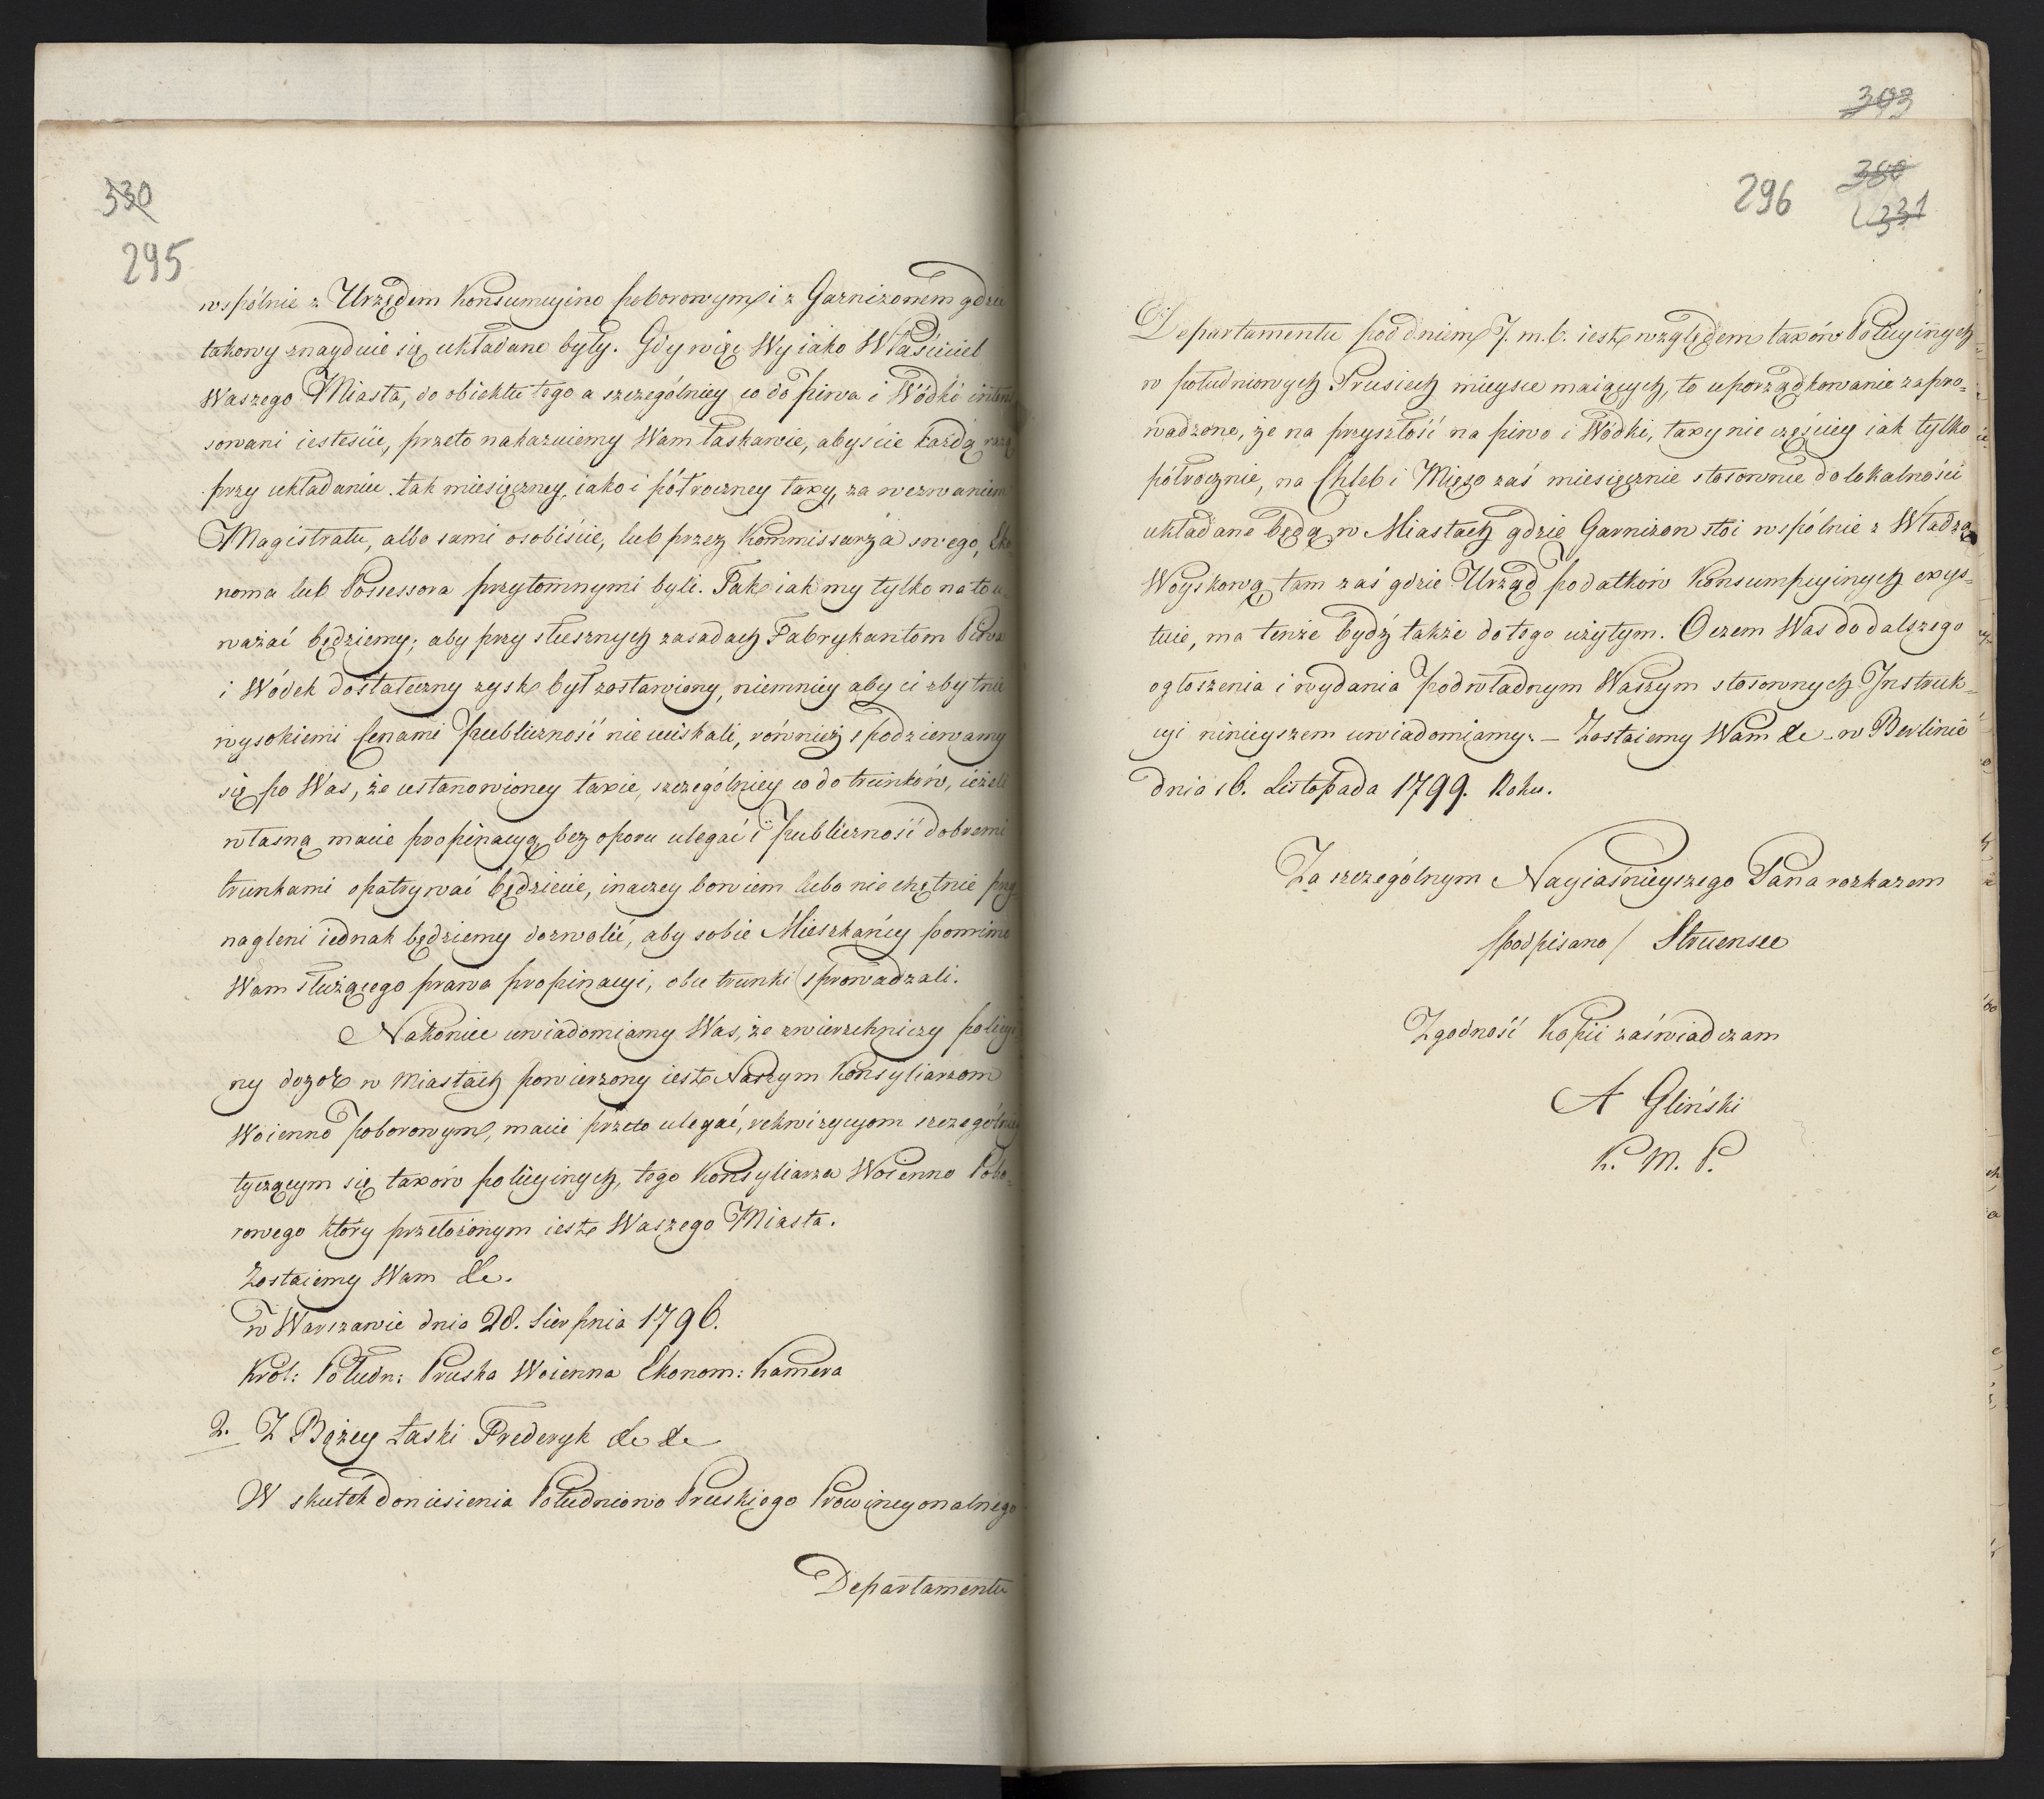 330
295
wspólnie z Urzędem Konsumcyino poborowym i z Garnizonem gdzie
takowy znayduie się układane były. Gdy więc Wy iako Właściciel
Waszego Miasta, do obiektu tego a szczególniey co do piwa i Wódki
sowani iesteście, przeto nakazuiemy Wam łaskawie, abyście każdą razą
przy układaniu tak miesięczney, iako i półroczney taxy, za wezwaniem
Magistratu, albo sami osobiście, lub przez Kommissarza swego, Eko
noma lub Possessora przytomnymi byli. Tak iak my tylko na to u
ważać będziemy; aby przy słusznych zasadach Fabrykantom Piwa
i Wódek dostateczny zysk był zostawiony, niemniey aby ci zbytnie
wysokiemi Cenami Publiczność nie uciskali, również spodziewamy
się po Was, że ustanowioney taxie, szczególniey co do trunków, ieżeli
własną macie propinacyą bez oporu ulegać i Publiczność dobremi
trunkami opatrywać będziecie, inaczey bowiem lubo nie chętnie przy
nagleni iednak będziemy dozwolić, aby sobie Mieszkańcy pomimo
Wam służącego prawa propinacyi, obce trunki sprowadzali.
Nakoniec uwiadomiamy Was, że zwierzchniczy policyi
ny dozór w Miastach powierzony iest Naszym Konsyliarzom
Woienno poborowym, macie przeto ulegać, rekwizycyom szczególniey
tyczącym się taxów policyinych, tego Konsyliarza Woienno Pobo-
rowego który przełożonym iest Waszego Miasta.
Zostaiemy Wam &c.
w Warszawie dnia 28. Sierpnia 1796.
Król: Połudn: Pruska Woienna Ekonom: Kamera
2. Z Bożey Łaski Frederyk &c &c
W skutek doniesienia Południowo Pruskiego Prowincyonalnego
Departamentu
393
380
296
331
Departamentu pod dniem 7. m. b. iest względem taxów Policyinych
w południowych Prusiech mieysce maiących, to uporządkowanie zapro=
wadzone, że na przyszłość na piwo i Wódki, taxy nie częściey iak tylko
półrocznie, na Chleb i Mięso zaś miesięcznie stosownie do lokalności
układane będą w Miastach gdzie Garnizon stoi wspólnie z Władzą
Woyskową, tam zaś gdzie Urząd podatków Konsumpcyinych exys=
tuie, ma tenże bydź także do tego użytym. O czem Was do dalszego
ogłoszenia i wydania podwładnym Waszym stosownych Instruk=
cyi ninieyszem uwiadomiamy. - Zostaiemy Wam &c - w Berlinie
dnia 16. Listopada 1799. Roku.
Za szczególnym Nayiaśnieyszego Pana rozkazem
/podpisano/ Struensee
Zgodność Kopii zaświadczam
A Gliński
K. M. P.